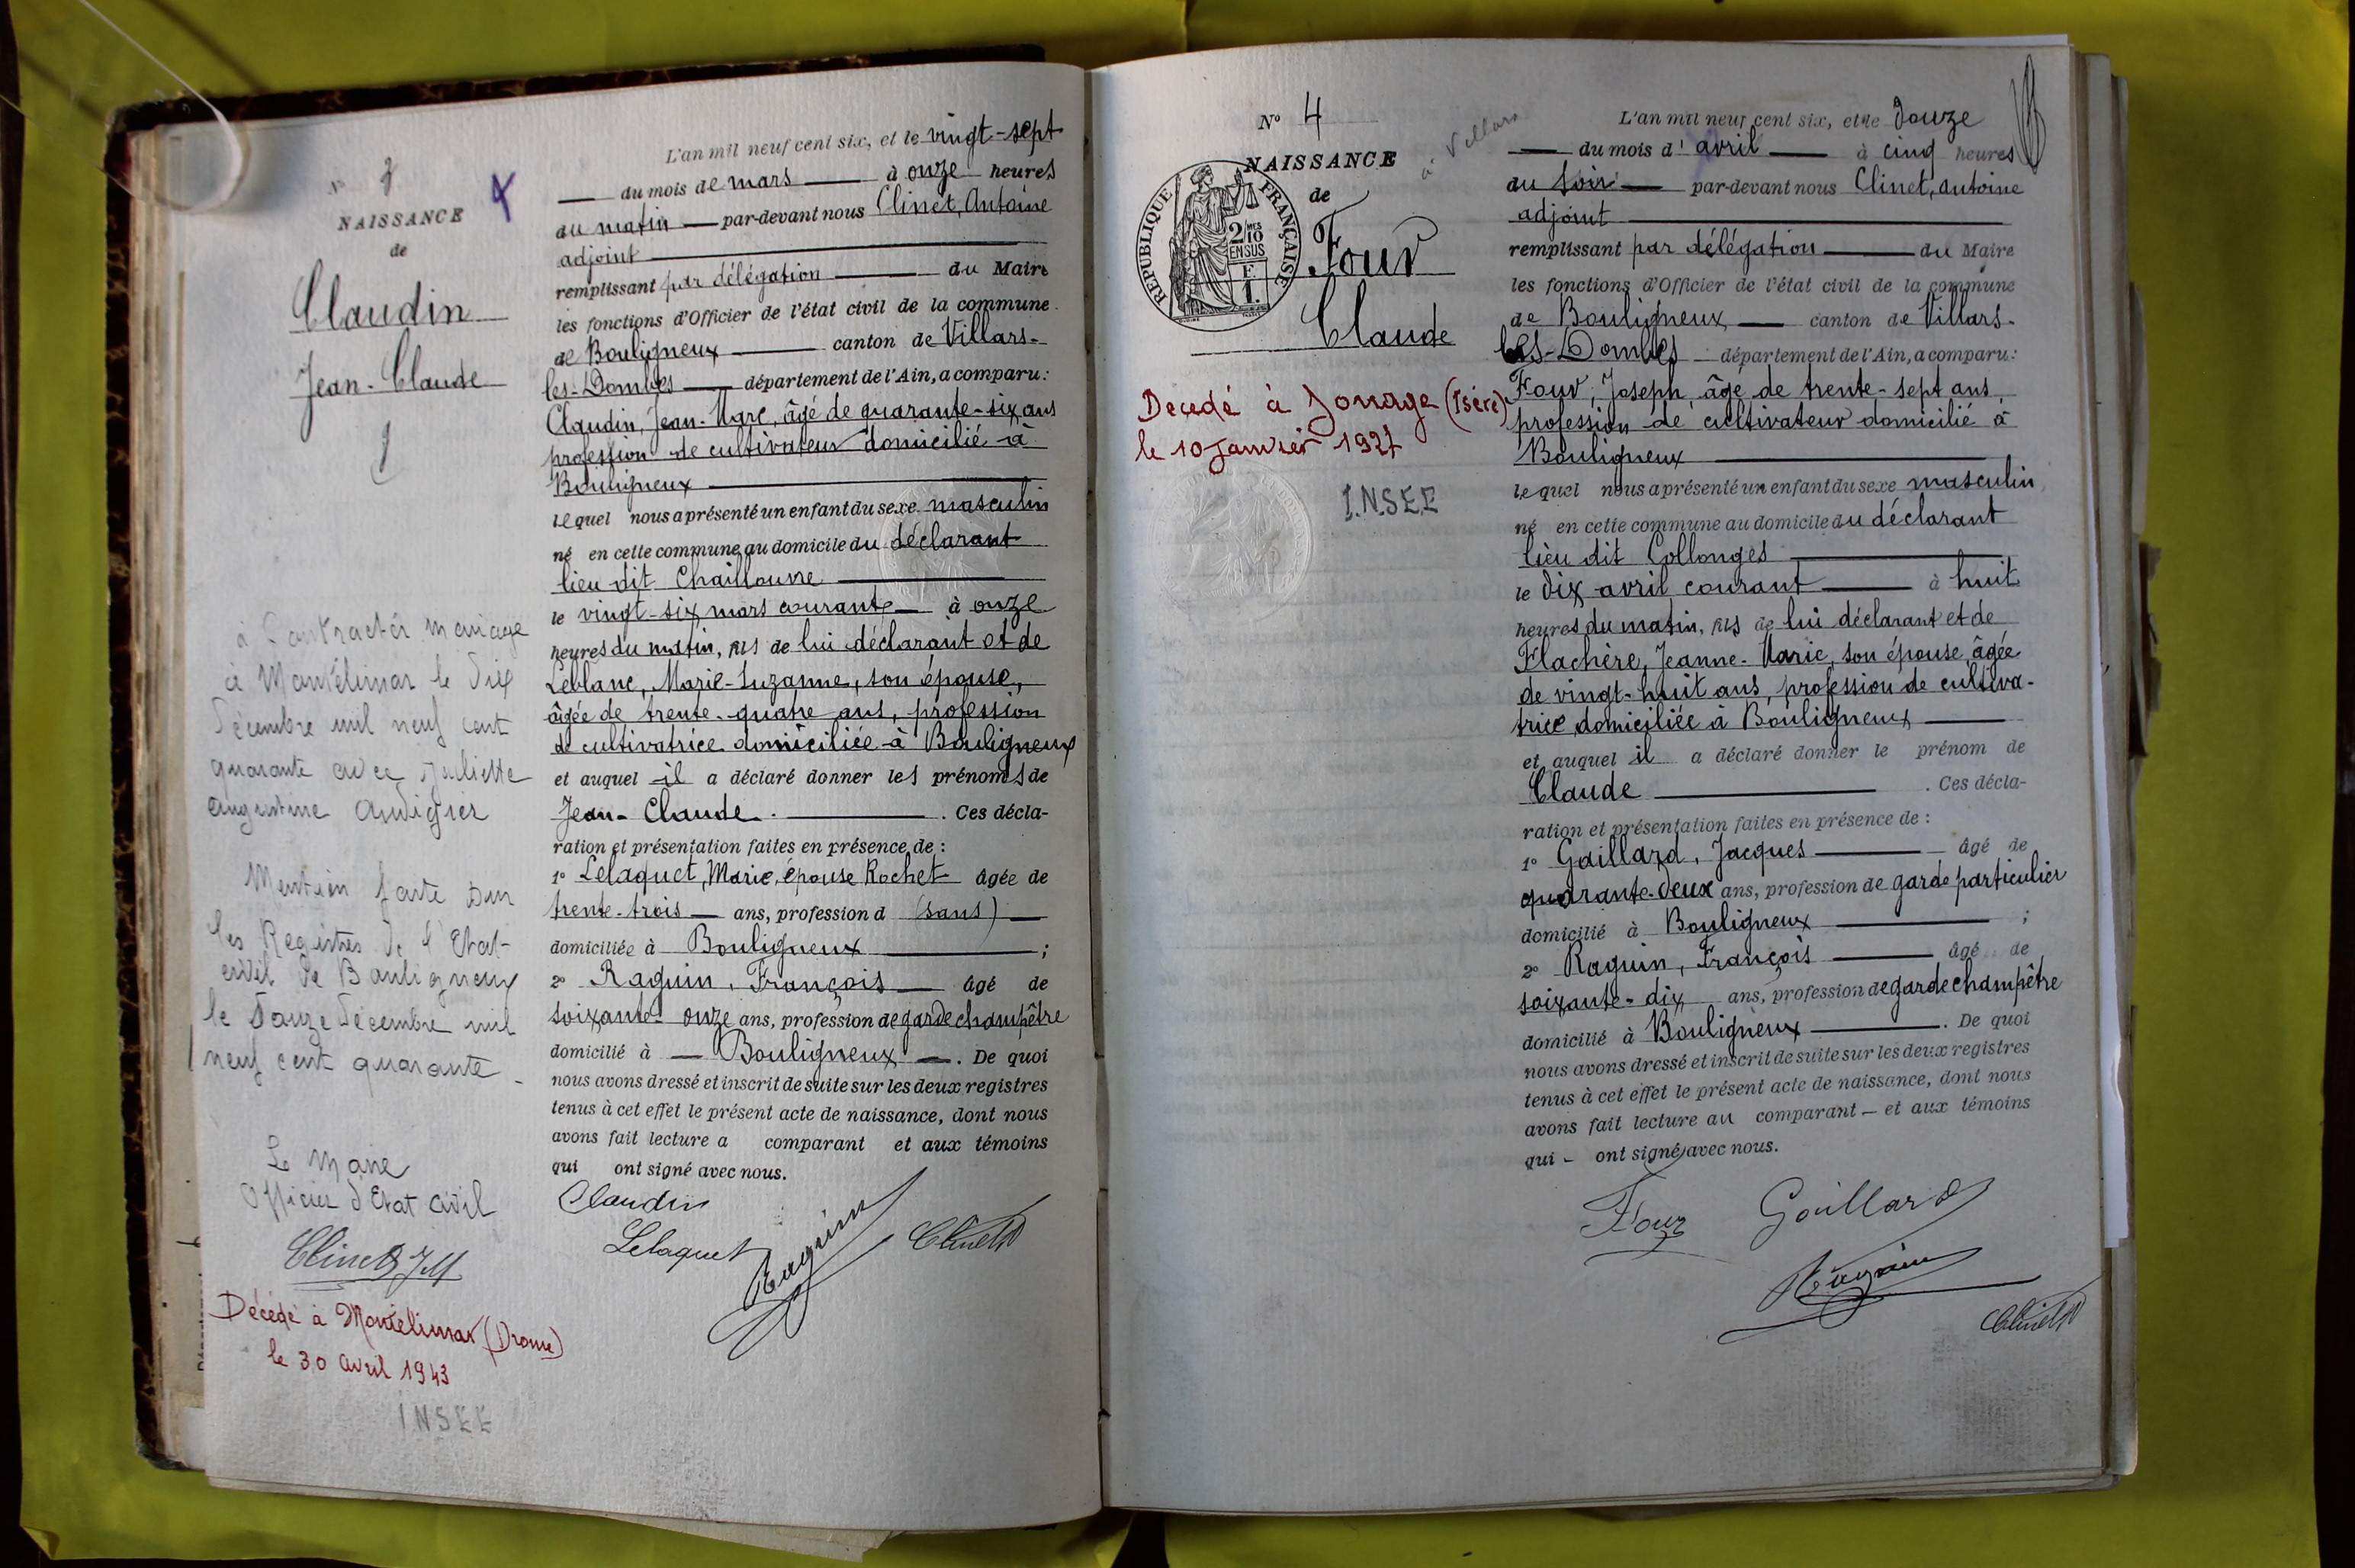 N° 3
NAISSANCE
de
Claudin
Jean-Claude
à Contracté mariage
à Montélimar le dix
décembre mil neuf cent
quarante avec Juliette
Augustine Audigier
Mention faite sur
les Registres de l'Etat-
civil de Bouligneux
le douze décembre mil
neuf cent quarante
Le Maire
Officier d'Etat civil
Clinet JM
Décédé à Montélimar (Drome)
le 30 avril 1943
INSEE
L'an mil neuf cent six, et le vingt-sept
du mois de mars à onze heures
du matin par-devant nous Clinet, Antoine
adjoint
remplissant par délégation du Maire
les fonctions d'Officier de l'état civil de la commune
de Bouligneux canton de Villars-
les-Dombes département de l'Ain, a comparu :
Claudin, Jean-Marc, âgé de quarante-six ans
profession de cultivateur domicilié à
Bouligneux
lequel nous a présenté un enfant du sexe masculin
né en cette commune au domicile du déclarant
lieu dit Chaillouvre
le vingt-six mars courant à onze
heures du matin, fils de lui déclarant et de
Leblanc, Marie-Suzanne, son épouse,
âgée de trente-quatre ans, profession
de cultivatrice domiciliée à Bouligneux
et auquel il a déclaré donner les prénoms de
Jean-Claude. Ces décla-
ration et présentation faites en présence de :
1° Lelaquet, Marie, épouse Rochet âgée de
trente-trois ans, profession d (sans)
domiciliée à Bouligneux ;
2° Raguin, François âgé de
soixante-onze ans, profession de garde champêtre
domicilié à Bouligneux. De quoi
nous avons dressé et inscrit de suite sur les deux registres
tenus à cet effet le présent acte de naissance, dont nous
avons fait lecture a comparant et aux témoins
qui ont signé avec nous.
Claudin
Lelaquet
Raguin
Clinet
N° 4
à Villars
NAISSANCE
de
RÉPUBLIQUE FRANÇAISE
2/10 MES
EN SUS
F.
1.
Four
Claude
Décédé à Jonage (Isère)
le 10 Janvier 1927
I.N.S.E.E
L'an mil neuf cent six, et le douze
du mois d'avril à cinq heures
du soir par-devant nous Clinet, Antoine
adjoint
remplissant par délégation du Maire
les fonctions d'Officier de l'état civil de la commune
de Bouligneux, canton de Villars-
les-Dombes département de l'Ain, a comparu :
Four, Joseph, âgé de trente-sept ans,
profession de cultivateur domicilié à
Bouligneux
lequel nous a présenté un enfant du sexe masculin
né en cette commune au domicile du déclarant
lieu dit Collonges
le dix avril courant à huit
heures du matin, fils de lui déclarant et de
Flachère, Jeanne-Marie, son épouse âgée
de vingt-huit ans, profession de cultiva-
trice domiciliée à Bouligneux
et auquel il a déclaré donner le prénom de
Claude. Ces décla-
ration et présentation faites en présence de :
1° Gaillard, Jacques âgé de
quarante-deux ans, profession de garde particulier
domicilié à Bouligneux ;
2° Raguin, François âgé de
soixante-dix ans, profession de garde champêtre
domicilié à Bouligneux. De quoi
nous avons dressé et inscrit de suite sur les deux registres
tenus à cet effet le présent acte de naissance, dont nous
avons fait lecture au comparant - et aux témoins
qui - ont signé avec nous.
Four Gaillard
Raguin
Clinet